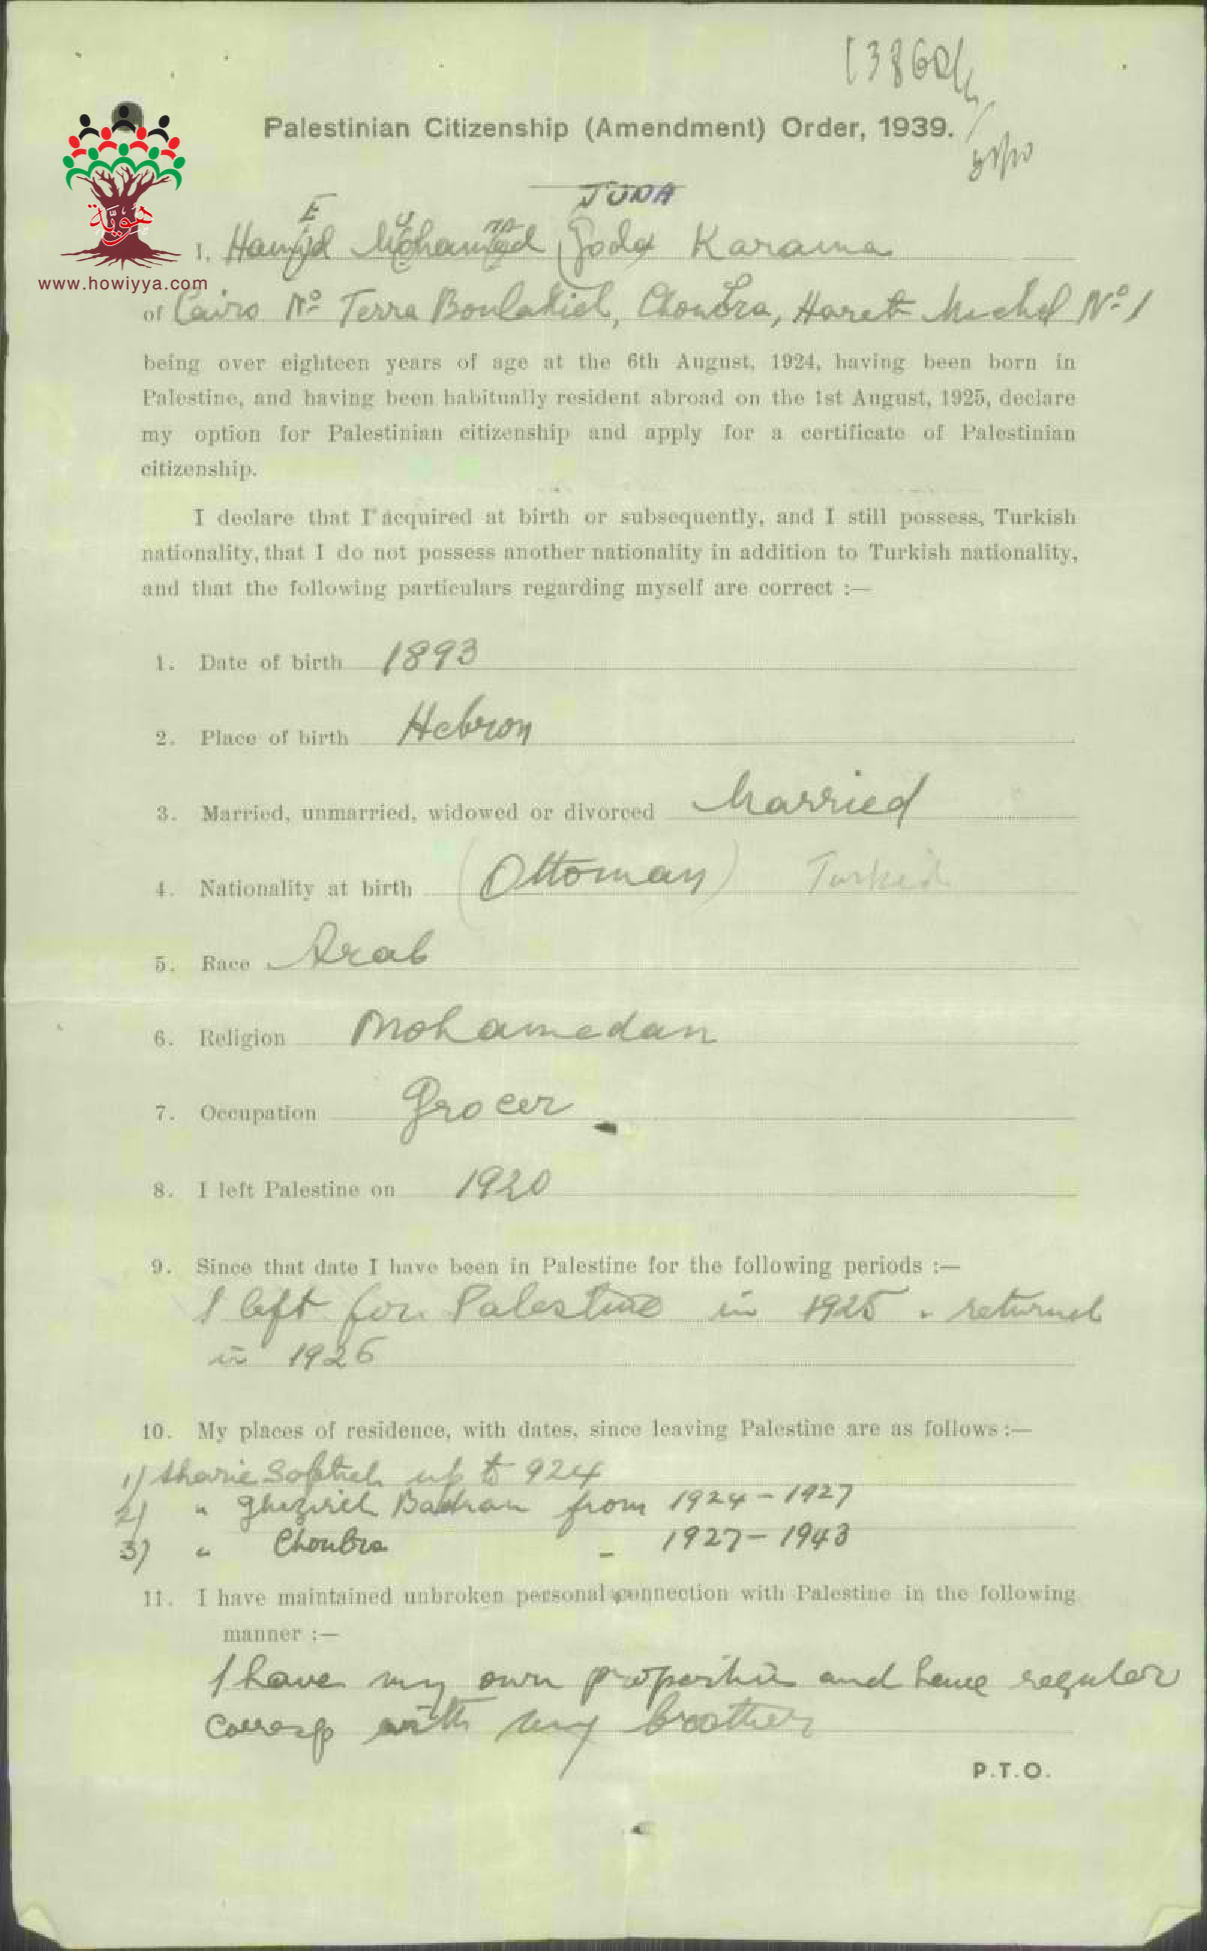 13860/
Palestinian Citizenship (Amendment) Order, 1939.
JUDA
E U
هوية
I. Hamid Mohamed Goda Karama
www.howiyya.com
of Cairo Nº Terra Boulakieh, Choubra, Haret Michel Nº 1
being over eighteen years of age at the 6th August, 1924, having been born in
Palestine, and having been habitually resident abroad on the 1st August, 1925, declare
my option for Palestinian citizenship and apply for a certificate of Palestinian
citizenship.
I declare that I acquired at birth or subsequently, and I still possess, Turkish
nationality, that I do not possess another nationality in addition to Turkish nationality,
and that the following particulars regarding myself are correct :—
1. Date of birth 1893
2. Place of birth Hebron
3. Married, unmarried, widowed or divorced Married
4. Nationality at birth (Ottoman) Turkish
5. Race Arab
6. Religion Mohamedan
7. Occupation Grocer
8. I left Palestine on 1920
9. Since that date I have been in Palestine for the following periods :—
I left for Palestine in 1925 - returned
in 1926
10. My places of residence, with dates, since leaving Palestine are as follows :—
1) Sharie up to 924
2) " Badran from 1924 - 1927
3) " Choubra - 1927 - 1943
11. I have maintained unbroken personal connection with Palestine in the following
manner :—
I have my own properties and have regular
corresp with my brother
P.T.O.